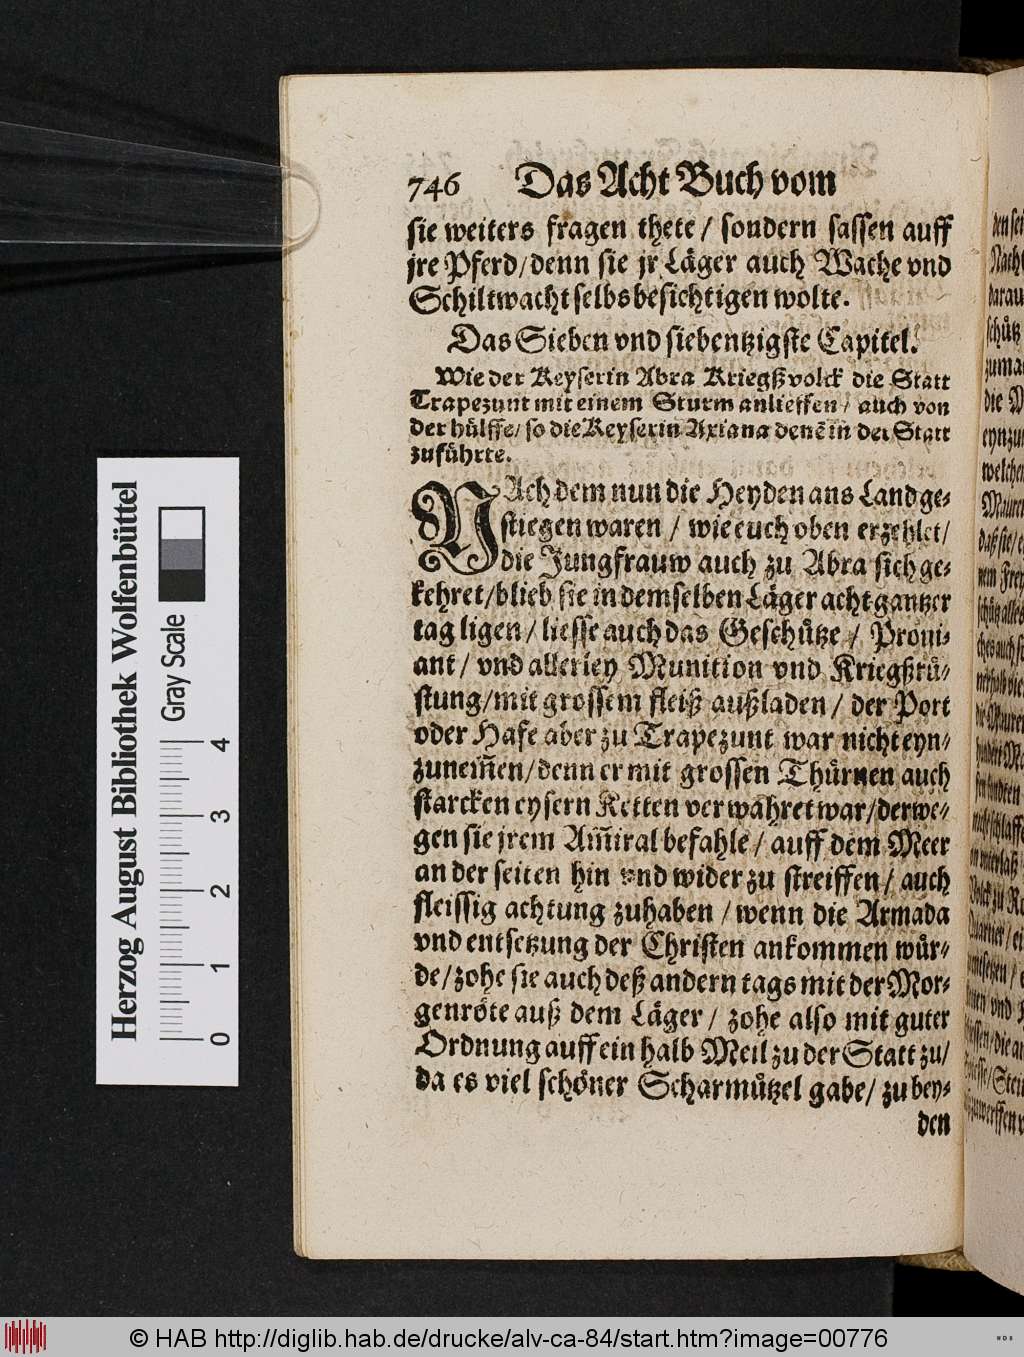 746 Das Acht Buch vom
sie weiters fragen thete / sondern sassen auff
jre Pferd/denn sie jr Läger auch Wache vnd
Schiltwacht selbs besichtigen wolte.
Das Sieben vnd siebentzigste Capitel.
Wie der Keyserin Abra Kriegßvolck die Statt
Trapezunt mit einem Sturm anlieffen / auch von
der hülffe/ so die Keyserin Axiana denē in der Statt
zuführte.
NAch dem nun die Heyden ans Land ge-
stiegen waren / wie euch oben erzehlet/
die Jungfrauw auch zu Abra sich ge-
kehret/blieb sie in demselben Läger acht gantzer
tag ligen / liesse auch das Geschütze / Proui-
ant / vnd allerley Munition vnd Kriegßrü-
stung/mit grossem fleiß außladen / der Port
oder Hafe aber zu Trapezunt war nicht eyn-
zunem̃en/denn er mit grossen Thürnen auch
starcken eysern Ketten verwahret war/derwe-
gen sie jrem Am̃iral befahle / auff dem Meer
an der seiten hin vnd wider zu streiffen / auch
fleissig achtung zuhaben / wenn die Armada
vnd entsetzung der Christen ankommen wür-
de/zohe sie auch deß andern tags mit der Mor-
genröte auß dem Läger / zohe also mit guter
Ordnung auff ein halb Meil zu der Statt zu/
da es viel schöner Scharmützel gabe/ zu bey-
den
den sei
Nach
darau
schütz
zuma
die M
eynzu
welche
Herzog August Bibliothek Wolfenbüttel
Gray Scale
0 1 2 3 4
© HAB http://diglib.hab.de/drucke/alv-ca-84/start.htm?image=00776